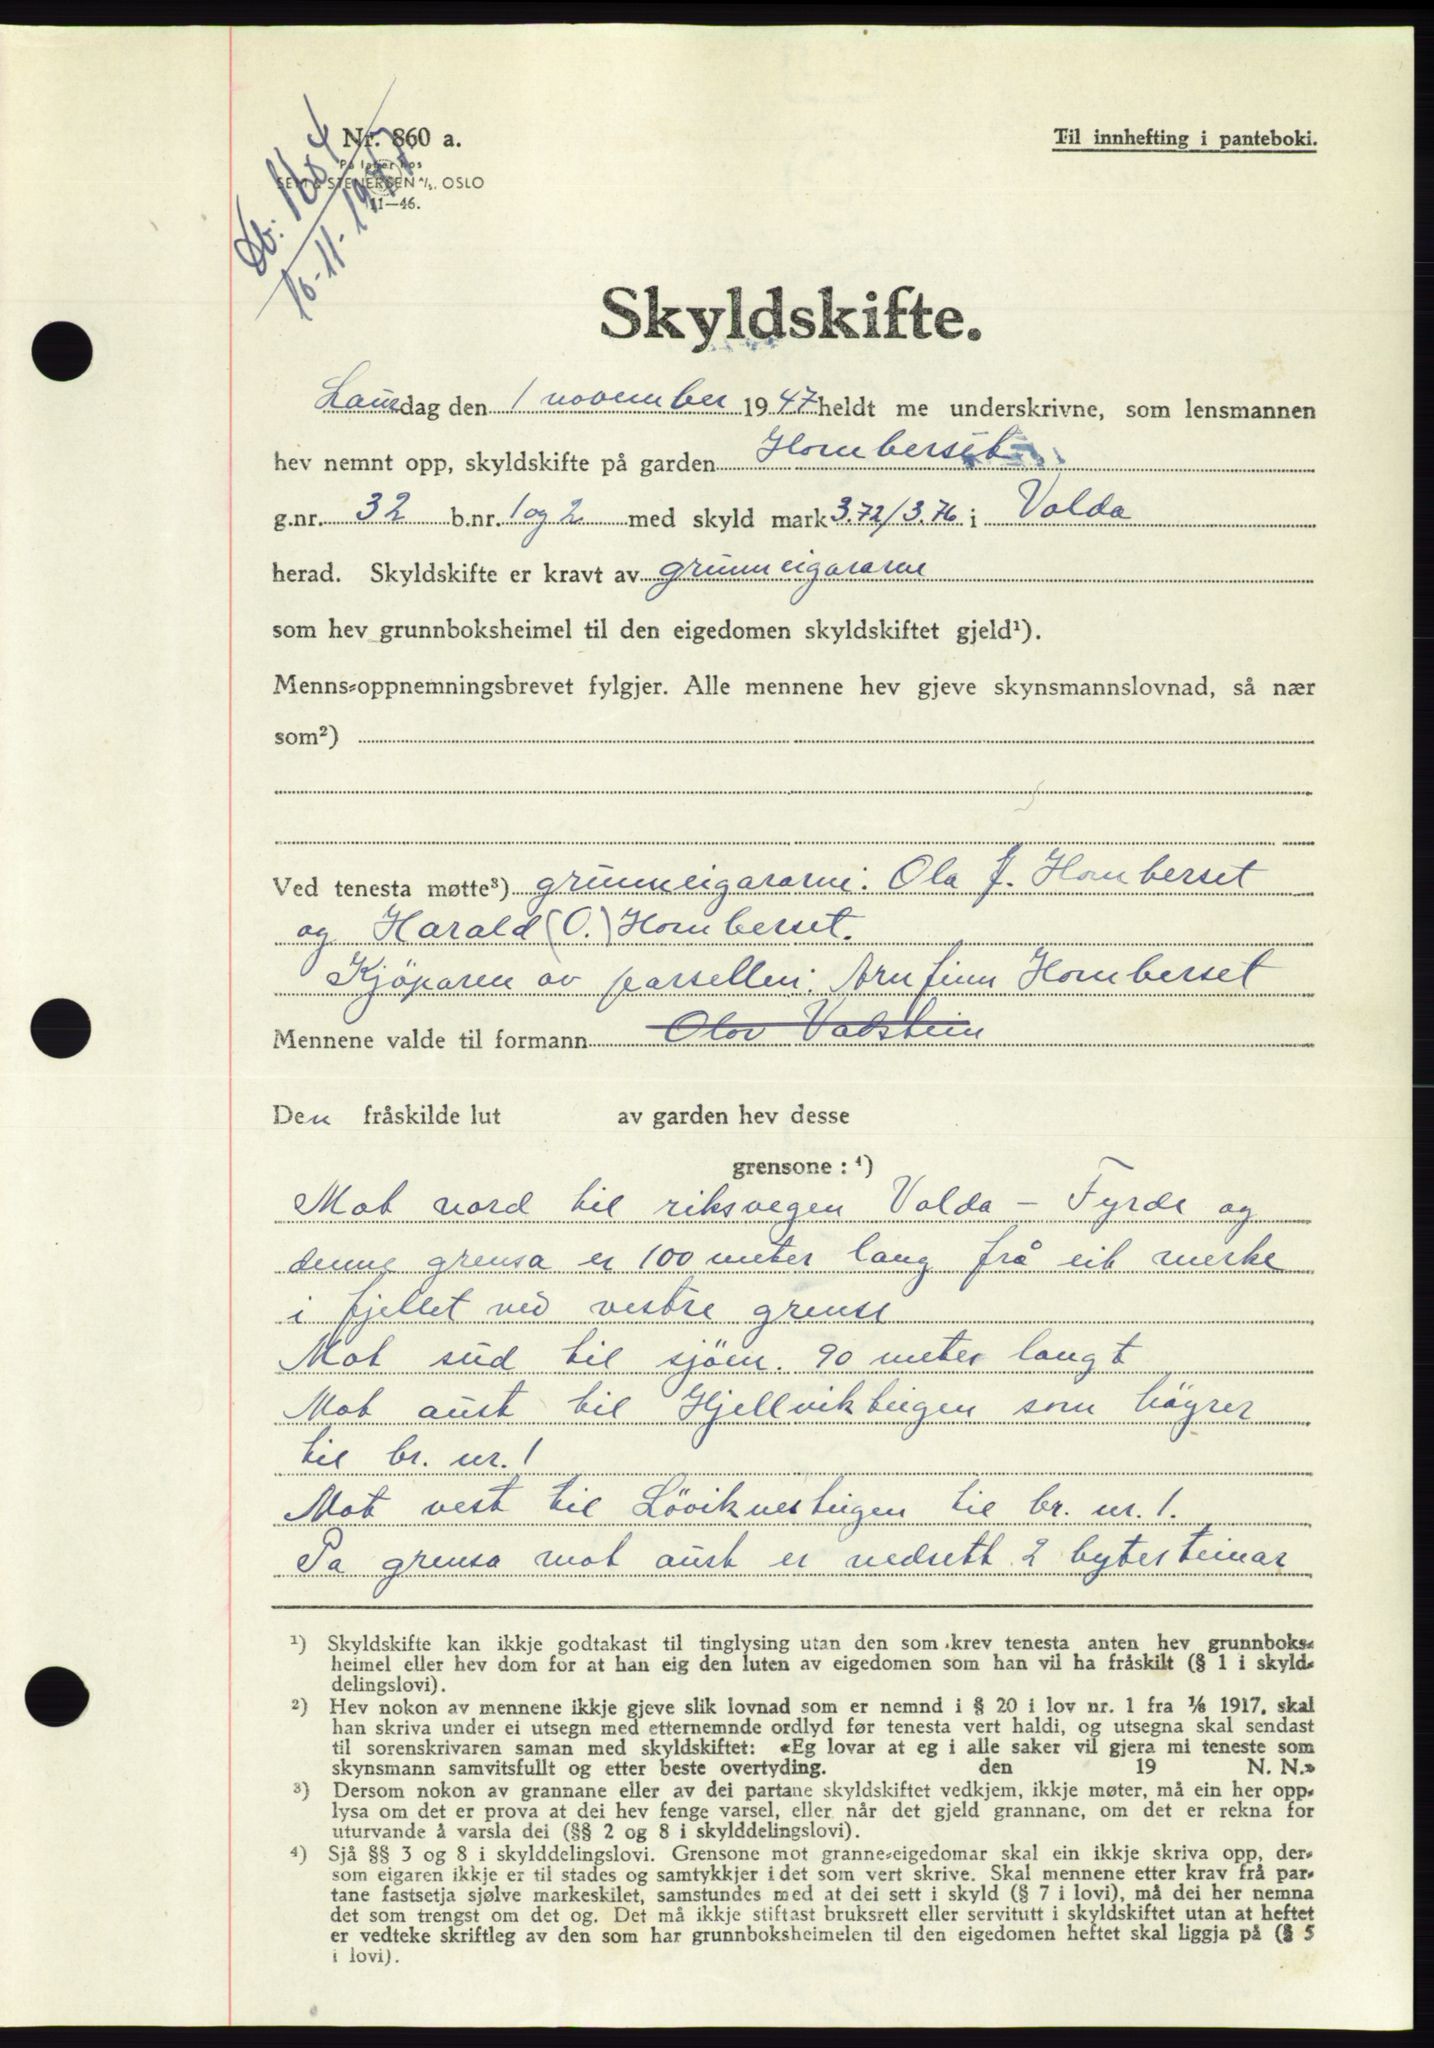 Db. 1684
10-11-1947
Nr. 860 a.
På lager hos
SEM & STENERSEN A/S, OSLO
11—46.
Til innhefting i panteboki.
Skyldskifte.
Laurdag den 1 november 1947 heldt me underskrivne, som lensmannen
hev nemnt opp, skyldskifte på garden Homberset
g.nr. 32 b.nr. 1 og 2 med skyld mark 3.72/3.76 i Volda
herad. Skyldskifte er kravt av grunneigararne
som hev grunnboksheimel til den eigedomen skyldskiftet gjeld¹).
Menns-oppnemningsbrevet fylgjer. Alle mennene hev gjeve skynsmannslovnad, så nær
som²)
Ved tenesta møtte³) grunneigararne: Ola J. Homberset
og Harald (O.) Homberset.
Kjöparen av parsellen: Arnfinn Homberset
Mennene valde til formann Olov Vatstein
Den fråskilde lut av garden hev desse
grensone: ⁴)
Mot nord til riksvegen Volda – Fyrde og
denne grensa er 100 meter lang frå eit merke
i fjellet ved vestre grense
Mot sud til sjöen. 90 meter langt
Mot aust til Hjellvikteigen som högrer
til br. nr. 1
Mot vest til Löviknesteigen til br. nr. 1.
Pa grensa mot aust er nedsett 2 bytesteinar
¹) Skyldskifte kan ikkje godtakast til tinglysing utan den som krev tenesta anten hev grunnboks-
heimel eller hev dom for at han eig den luten av eigedomen som han vil ha fråskilt (§ 1 i skyld-
delingslovi).
²) Hev nokon av mennene ikkje gjeve slik lovnad som er nemnd i § 20 i lov nr. 1 fra 1/6 1917, skal
han skriva under ei utsegn med etternemnde ordlyd før tenesta vert haldi, og utsegna skal sendast
til sorenskrivaren saman med skyldskiftet: «Eg lovar at eg i alle saker vil gjera mi teneste som
skynsmann samvitsfullt og etter beste overtyding. den 19 N. N.»
³) Dersom nokon av grannane eller av dei partane skyldskiftet vedkjem, ikkje møter, må ein her opp-
lysa om det er prova at dei hev fenge varsel, eller når det gjeld grannane, om det er rekna for
uturvande å varsla dei (§§ 2 og 8 i skylddelingslovi).
⁴) Sjå §§ 3 og 8 i skylddelingslovi. Grensone mot granne-eigedomar skal ein ikkje skriva opp, der-
som eigaren ikkje er til stades og samtykkjer i det som vert skrive. Skal mennene etter krav frå par-
tane fastsetja sjølve markeskilet, samstundes med at dei sett i skyld (§ 7 i lovi), må dei her nemna
det som trengst om det og. Det må ikkje stiftast bruksrett eller servitutt i skyldskiftet utan at heftet
er vedteke skriftleg av den som har grunnboksheimelen til den eigedomen heftet skal liggja på (§ 5
i lovi).